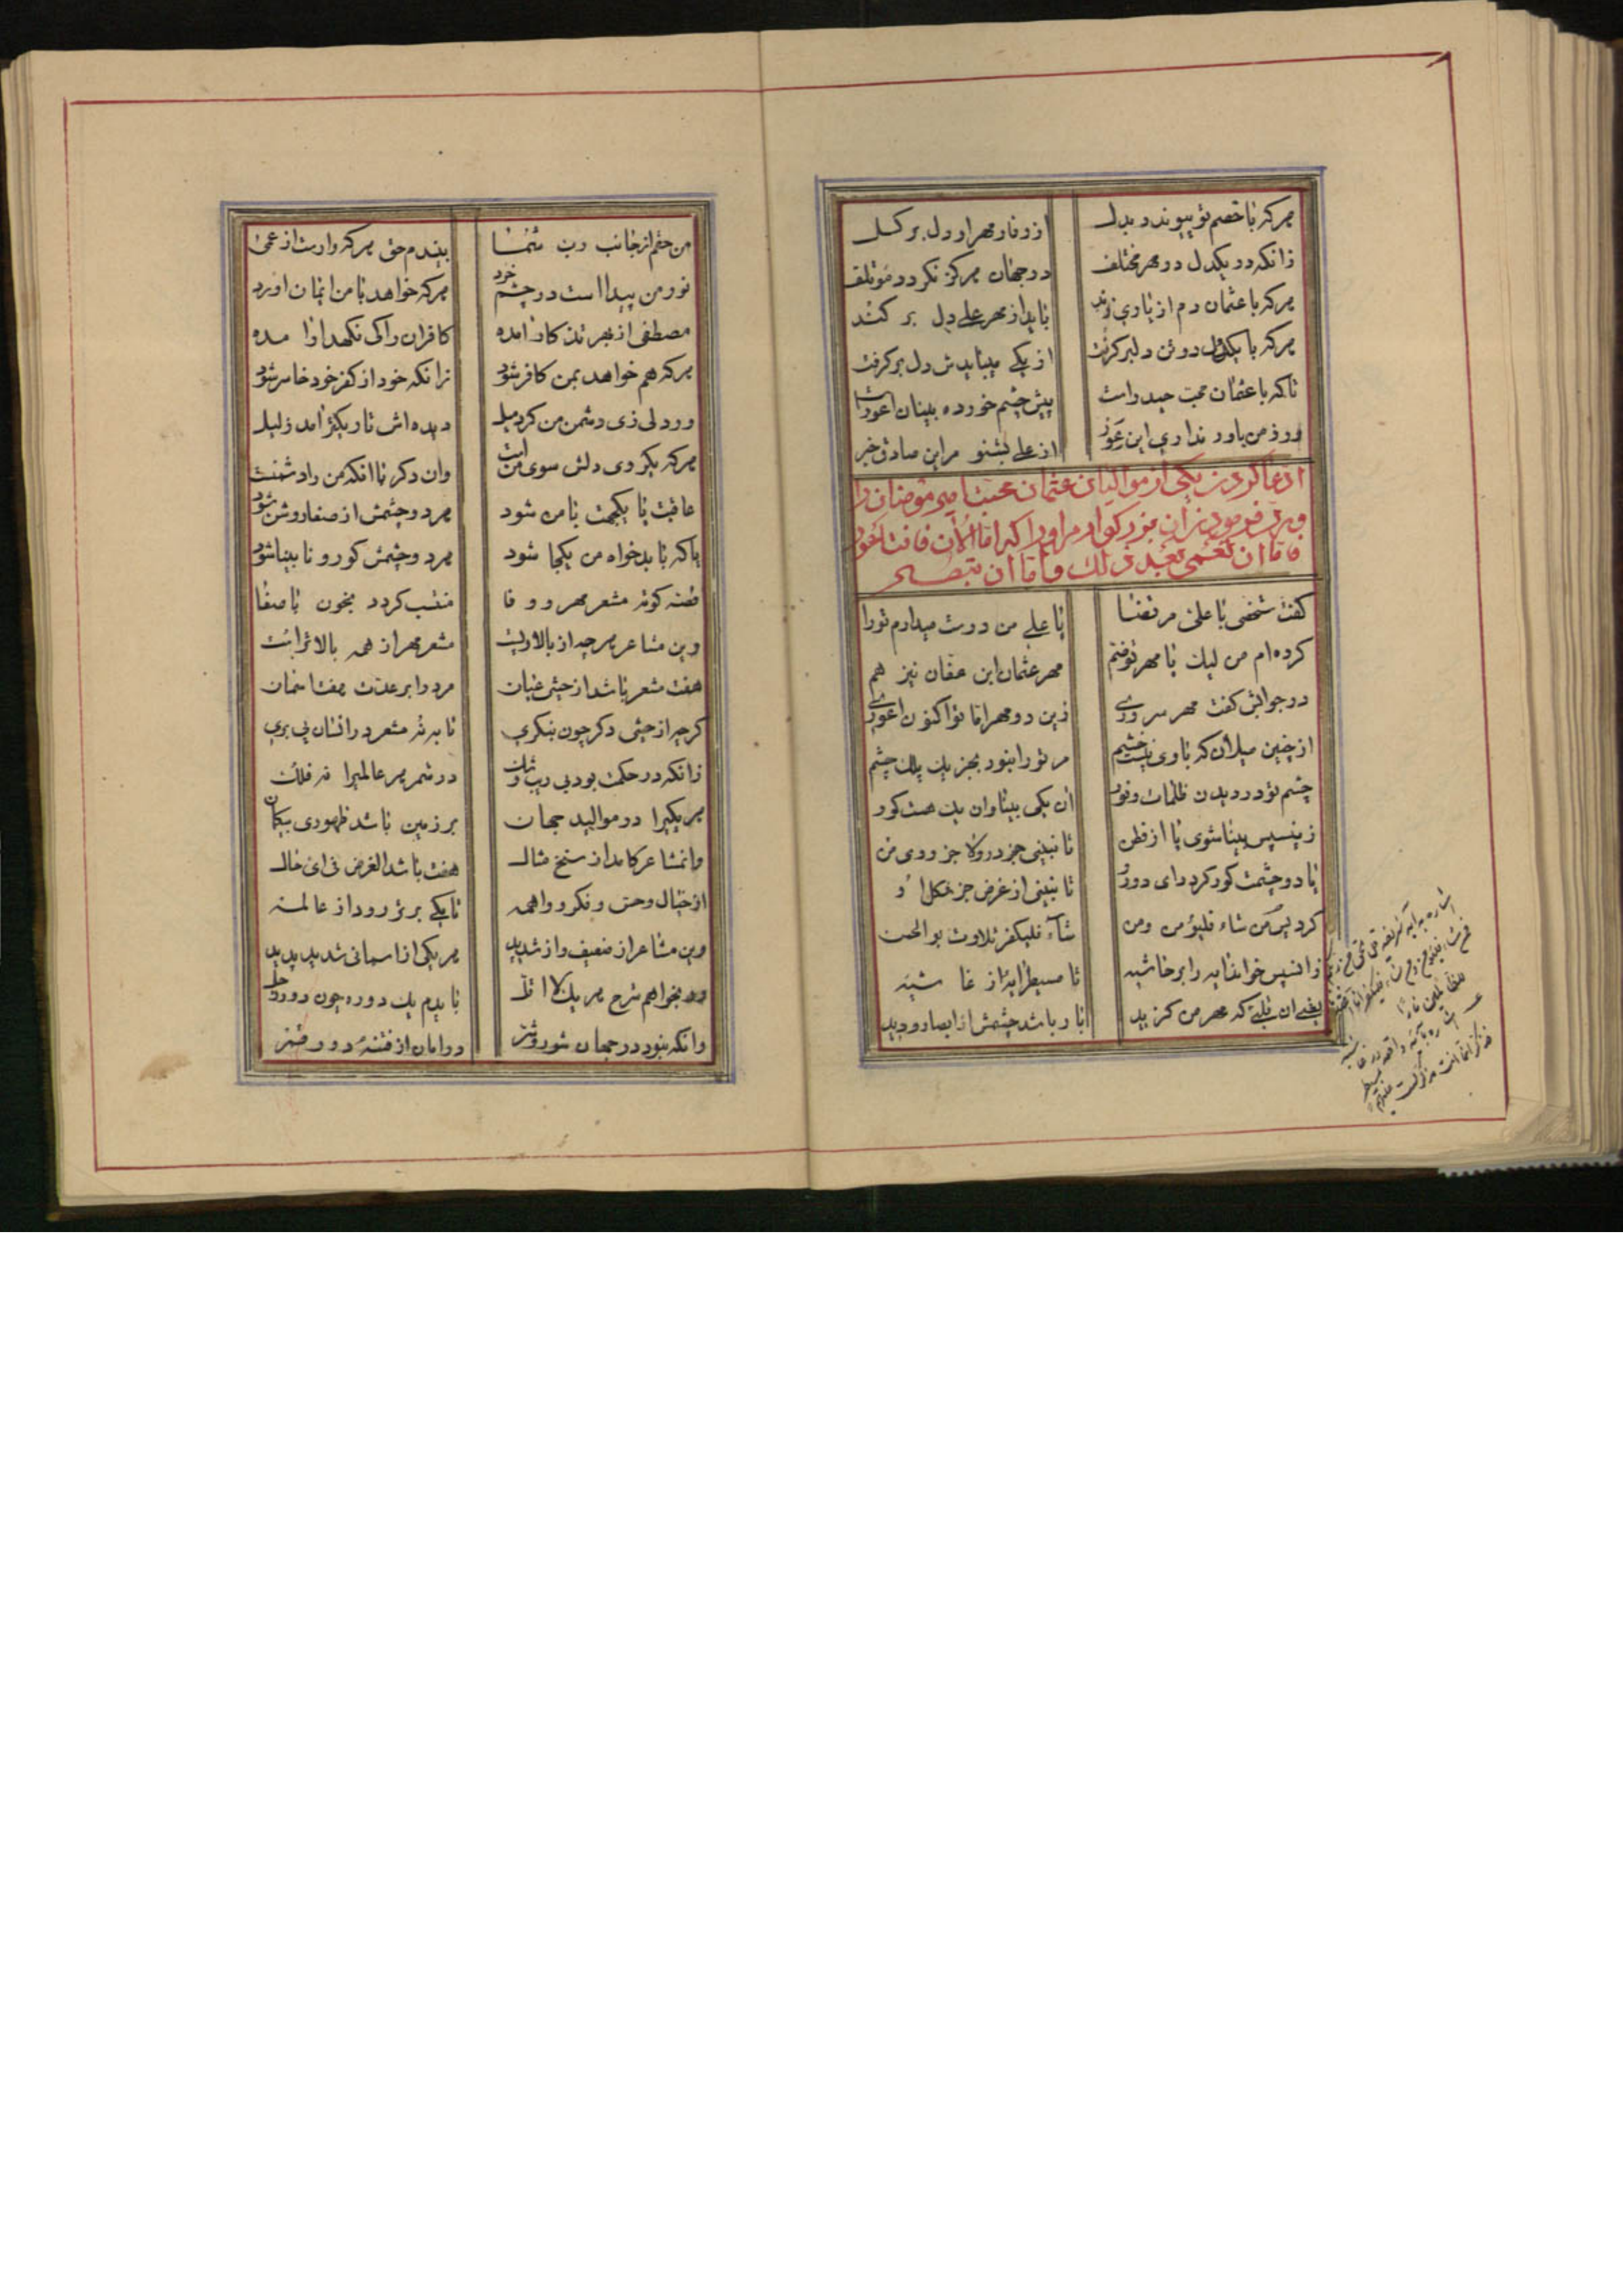 هرکه با خصم تو پیوندد بدل از وفا و مهر او دل بر گسل
زانکه در یکدل دو مهر مختلف در جهان هرگز نگردد مؤتلف
هرکه با عثمان دم از یاری زند باید از مهر علی دل بر کند
هرکه با یکدل دو تن دلبر گرفت از یکی میبایدش دل بر گرفت
تا که با عثمان محبت حیدر است پیش چشم خورده بینان اعور است
ور ز من باور نداری این از علی بشنو مر این صادق خبر
ادعا کردن یکی از موالیان عثمان محبت امیر مؤمنان را
و فرمودن آن بزرگوار مر او را که اما الآن فانت اعور
فاما ان تعمی بعد ذلک و اما ان تبصر
گفت شخصی با علی مرتضا یا علی من دوست میدارم تو را
کرده‌ام من لیک با مهر تو ضم مهر عثمان ابن عفان نیز هم
در جوابش گفت مهر سروری زین دو مهر اما تو اکنون اعوری
از چنین میلان که با وی نیست خشم مر تو را نبود بجز یک یک چشم
چشم تو در دیدن ظلمات و نور آن یکی بینا و آن یک هست کور
زینسپس بینا شوی یا از فطن تا نبینی جز در ولا جز روی من
یا دو چشمت کور گردد ای دور تا نبینی از غرض جز شکل او
کرد پس من شاء فلیؤمن و من شاء فلیکفر تلاوت بو الحسن
زانسپس خواند آیه را بر حاشیه تا مسیطر آیه از غاشیه
یعنی آن یک که مهر من گزید یا باشد چشمش از ابصار دید
اشاره به آیه شریفه قل الحق من ربکم
فمن شاء فلیؤمن و من شاء فلیکفر انا اعتدنا
للظالمین نارا
اشاره بآیه واقعه در غاشیه
فذکر انما انت مذکر لست علیهم بمصیطر
من حقم از جانب رب بیندم حق هرکه وارست از عمی
نور من پیدا است در چشم خرد هرکه خواهد با من ایمان آورد
مصطفی از بهر تذکار آمده کافران را کی نگهدار آمده
هرکه هم خواهد بمن کافر شود زانکه خود از کفر خود خاسر شود
ور دلی زی دشمن من کرد میل دیده‌اش تاریکتر آمد ز لیل
هرکه یکروی دلش سوی من است وان دگر با آنکه من را دشمنست
عاقبت یا یکجهت با من شود هر دو چشمش از صفا روشن شود
یا که با بدخواه من یکجا شود هر دو چشمش کور و نابینا شود
قصه کوته مشعر مهر و وفا منقسب گردد بخون با صفا
وین مشاعر هرچه از بالا مشعر مهر از همه بالاتر است
هفت مشعر باشد از حسی عیان مرد را بر عدت هفت آسمان
گرچه از حسی دگر چون بنگری تا به نه مشعر در انسان پی بری
زانکه در حکمت بود بی ریب و شک در شمر هر عالمیرا نه فلک
هر یکیرا در موالید جهان بر زمین باشد ظهوری بیگمان
وانمشاعر کامد از سنخ مثال هفت باشد الغرض نی ای خال
از خیال و حس و فکر و واهمه تا یکی برتر رود از عالمه
وین مشاعر از ضعیف و از شدید هر یکی از آسمانی شد پدید
ور بخواهم شرح هر یک لا اقل باید یک دوره چون دور
وانکه نبود در جهان شور و شر در امان از فتنه دور قمر